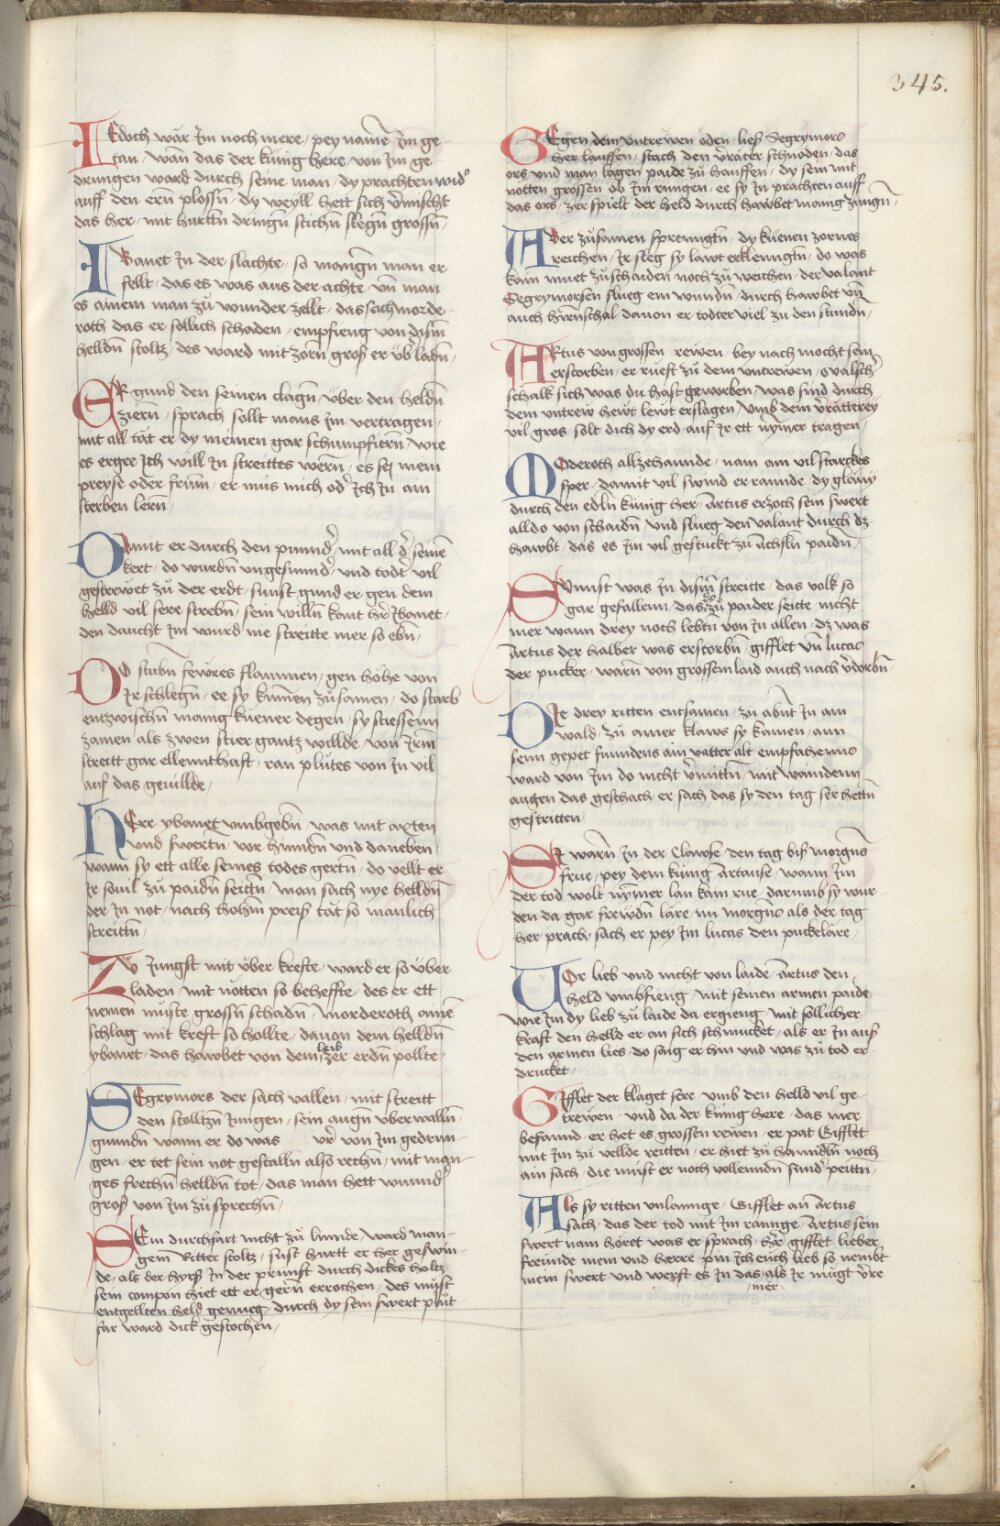 345.
IEdoch wär Im noch mere / pey namē Im ge-
tan / wan das der kung here / von Im ge-
drungen ward durch seine man / dy prachten wid
auff den ern plossn / dy weyll hett sich vmischt
das her / mit hurttn dringn stichn slegn grossn /
IBanet In der slachte / so mangn man er-
fellt / das es was aus der achte / vn man
es ainem man zu wunder zellt / das sach morde-
roth das er sollich schaden / empfieng von dism
helldn stoltz / des ward mit zorn gros er vb ladn /
ER gund den seinen clagn / über den heldn
ziern / sprach sollt mans Im vertragen /
mit all tät er dy meinen gar schumpfiern / wie
es ergee Ich will In streittes wern / es sey mein
preyse oder frum / er mus mich od Ich In am
sterben lern /
DAmit er durch den punnd / mit all d seinē
kert / do wurdn vngesunnd / vnd todt vil
gestrewet zu der erdt / sunst gund er gen dem
helld vil sere strebn / sein willn kant her Ibanet /
den daucht Im wurd nie streitte mer so ebn /
DO stubn fewres flammen / gen höhe von
Ir schlegn / ee sy kumen zusamen / do starb
entzwischn manig küener degen / sy stiessenn
zamen als zwen stier gantz willde / von Irm
streitt gar ellennthaft / ran plutes von In vil
auf das geuillde /
HErr ybanet vmbgebn / was mit axten
vnd swertn / vor hinndn vnd daneben /
wann sy ett alle seines todes gertn / do vellt er
Ir souil zu paidn seittn / man sach nye helldn
der In not / nach hohm preis tät so manlich
streittn /
ZV Iungst mit über krefte / ward er so über
laden / mit nötten so beheffte / des er ett
nemen muste grossn schadn / Morderoth ainē
schlag mit kreft so hollte / dauon dem helldn
ybanet / das hawbet von dem leib zer erdn pollte /
SEgrymors der sach vallen / mit streitt
den stolltzn Iungen / sein augn vberwalln
gunndn wann er do was vr von Im gedrun-
gen / er tet sein not gestalln also rechn / mit man-
ges frechn helldn tot / das man hett wunnd
gros von Im zu sprechn /
SEin durchfart nicht zu linnde ward man-
gem Ritter stoltz / sust hurtt er her geswin-
de / als der hyrss In der prunst durch dickes holtz
sein compan hiet ett er gern errochen / des must
entgellten held genueg / durch dy sein swert plut
far ward dick gestochen /
GEgen dem vntrewen öden / lies Segrymors
her lauffen / stach den vräter schnöden / das
ors vnd man lagen paide zu hauffen / dy sein mit
nötten grossen ob Im rungen / ee sy In prachten auff
das ors / zerspielt der held durch hawbet manig zungn /
ABer zusamen sprenngtn / dy küenen zornes
reichen / Ir sleg sy lawt erklenngtn / do was
kain muet zu schaiden noch zu weichen / der valant
Segrymorsen slueg ein wundn / durch hawbet vn
auch hirenschal / dauon er todter viel zu den stundn /
ARtus von grossen rewen / bey nach mocht sein
erstorben / er rueft zu dem vntrewen / o valsch
schalk sich was du hast geworben / was sind durch
dein vntrew hewt lewt erslagen / vmb dein vrätterey
vil gros / solt dich dy erd / auf Ir ett nymer tragen /
MOderoth allzehannde / nam ain vil starckes
sper / damit vil swind er rannde / dy gläny
durch den edln künig her / Artus erzoch sein swert
alldo von schaidn / vnd slueg den valant durch dz
hawbt / das es Im vil gestuckt zu Achsln paidn /
SVnnst was In dism streitte / das volk so
gar gefallenn / das zu paider seitte nicht
mer wann drey noch lebtn von In allen / dz was
Artus der halber was erstorbn / gifflet vn lucas
der pucker / warn von grossem laid auch nach vdorbn /
DIe drey ritten entsamen / zu abnt In ain
wald / zu ainer klaws sy kamen / ann
seim gepet funndens ain vatter alt / empfahenns
ward von Im do nicht vmittn / mit wainden
augen das geschach / er sach das sy den tag ser hettn
gestritten
SI warn In der Clawse / den tag bis morgns
frue / pey dem künig Artause / wann Im
der tod wolt nymer lan kain rue / darumb sy wur-
den da gar frewdn läre / nu morgns als der tag
her prach / sach er pey Im lucas den puckeläre /
VOr lieb vnd nicht von laide / Artus den
held vmbfieng / mit seinen armen paide
wie Im dy lieb zu laide da ergieng / mit söllicher
kraft den helld er an sich schmucket / als er In aus
den armen lies / do saig er hin vnd was zu tod er-
drucket /
GIfflet der klaget sere / vmb den helld vil ge-
trewen / vnd da der künig here / das mer
befannd / er het es grossen rewen / er pat Gifflet
mit Im zu vellde reitten / er hiet zu hanndln noch
ain sach / die must er noch vollenndn sund peittn /
ALs sy ritten vnlannge / Gifflet an Artus
sach / das der tod mit Im rannge / Artus sein
swert nam / höret was er sprach / her gifflet lieber
freunde mein vnd herre / pin Ich euch lieb so nembt
mein swert vnd werft es In das / als Ir mügt vere
mer